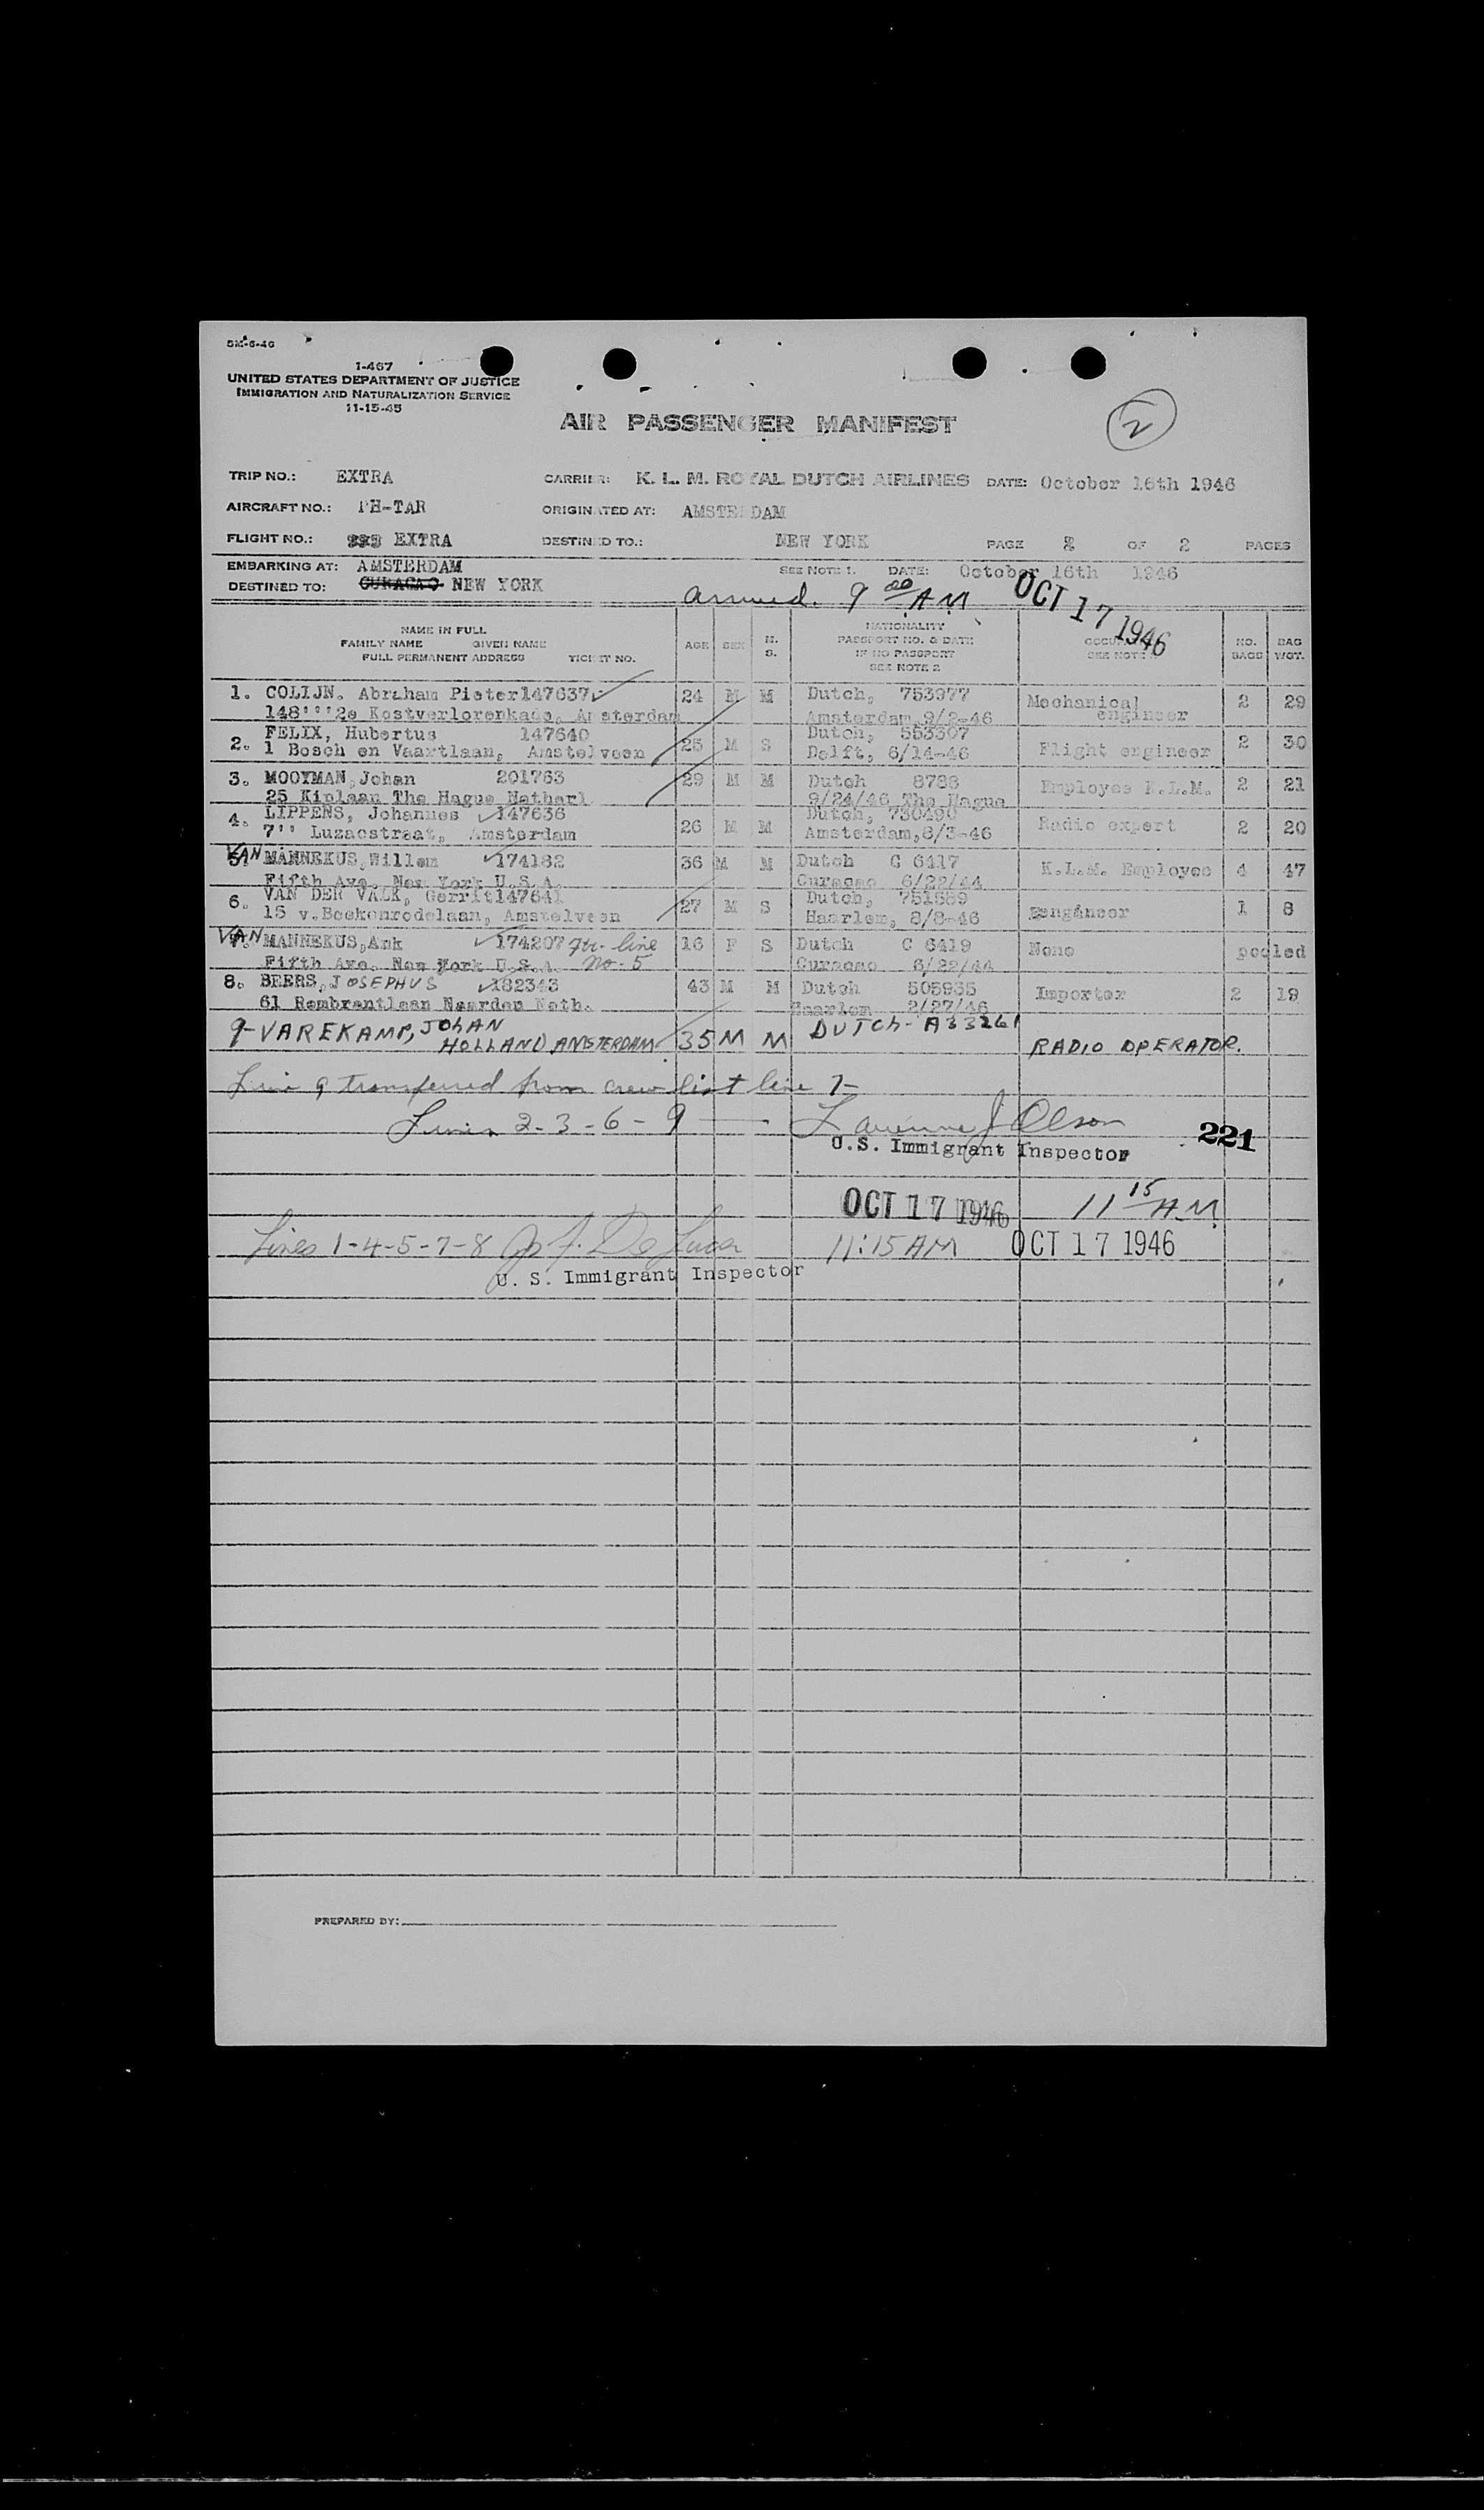 5M-6-46
1-467
UNITED STATES DEPARTMENT OF JUSTICE
IMMIGRATION AND NATURALIZATION SERVICE
11-15-45
AIR PASSENGER MANIFEST
2
TRIP NO.: EXTRA CARRIER: K. L. M. ROYAL DUTCH AIRLINES DATE: October 16th 1946
AIRCRAFT NO.: PH-TAR ORIGINATED AT: AMSTERDAM
FLIGHT NO.: EXTRA DESTINED TO.: NEW YORK PAGE 2 OF 2 PAGES
EMBARKING AT: AMSTERDAM SEE NOTE 1. DATE: October 16th 1946
DESTINED TO: CURACAO NEW YORK
arrived. 9 00 AM OCT 17 1946
NAME IN FULL
FAMILY NAME GIVEN NAME
FULL PERMANENT ADDRESS TICKET NO.
AGE SEX M. S.
NATIONALITY
PASSPORT NO. & DATE
IF NO PASSPORT
SEE NOTE 2
SEE NOTE
NO. BAGS
BAG WGT.
1. COLIJN. Abraham Pieter147637 24 M M Dutch, 753977 Mechanical 2 29
148'''2e Kostverlorenkade, Amsterdam Amsterdam,9/2-46 engineer
2. FELIX, Hubertus 147640 25 M S Dutch, 553307 Flight engineer 2 30
1 Bosch en Vaartlaan, Amstelveen Delft, 6/14-46
3. MOOYMAN,Johan 201763 29 M M Dutch 8788 Employee K.L.M. 2 21
25 Kiplaan The Hague Netherl 9/24/46 The Hague
4. LIPPENS, Johannes 147636 26 M M Dutch, 730490 Radio expert 2 20
7'' Luzacstraat, Amsterdam Amsterdam,8/3-46
VAN
5. MANNEKUS,Willem 174182 36 M M Dutch C 6417 K.L.M. Employee 4 47
Fifth Ave. New York U.S.A. Curacao 6/22/44
6. VAN DER VALK, Gerrit147641 27 M S Dutch, 751589 1 8
15 v.Beekenrodelaan, Amstelveen Haarlem, 8/8-46
VAN
7. MANNEKUS,Ank 174207 fthr. line 16 F S Dutch C 6419 None pooled
Fifth Ave. New York U.S.A. No. 5 Curacao 6/22/44
8. BEERS, JOSEPHUS 182343 43 M M Dutch 505935 Importer 2 19
61 Rembrantlaan Naarden Neth. Haarlem 2/27/46
9- VAREKAMP, JOHAN 35 M M DUTCH- A33261
HOLLAND AMSTERDAM RADIO OPERATOR.
Line 9 transferred from crew list line 7-
Lines 2-3-6-9 Olson
U.S. Immigrant Inspector
221
OCT 17 1946 11 15 AM
Lines 1-4-5-7-8 De Luca 11:15 AM OCT 17 1946
U. S. Immigrant Inspector
PREPARED BY: